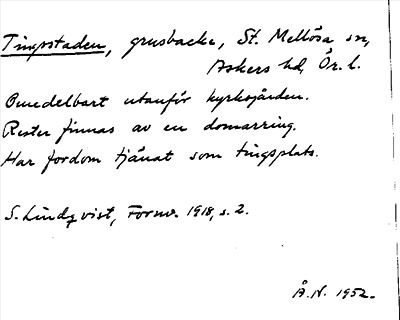 Tingsstaden, grusbacke, St. Mellösa sn,
Askers hd, Ör. l.
Omedelbart utanför kyrkogården.
Rester finnas av en domarring.
Har fordom tjänat som tingsplats.
S. Lindqvist, Fornv. 1918, s. 2.
Å.N. 1952.